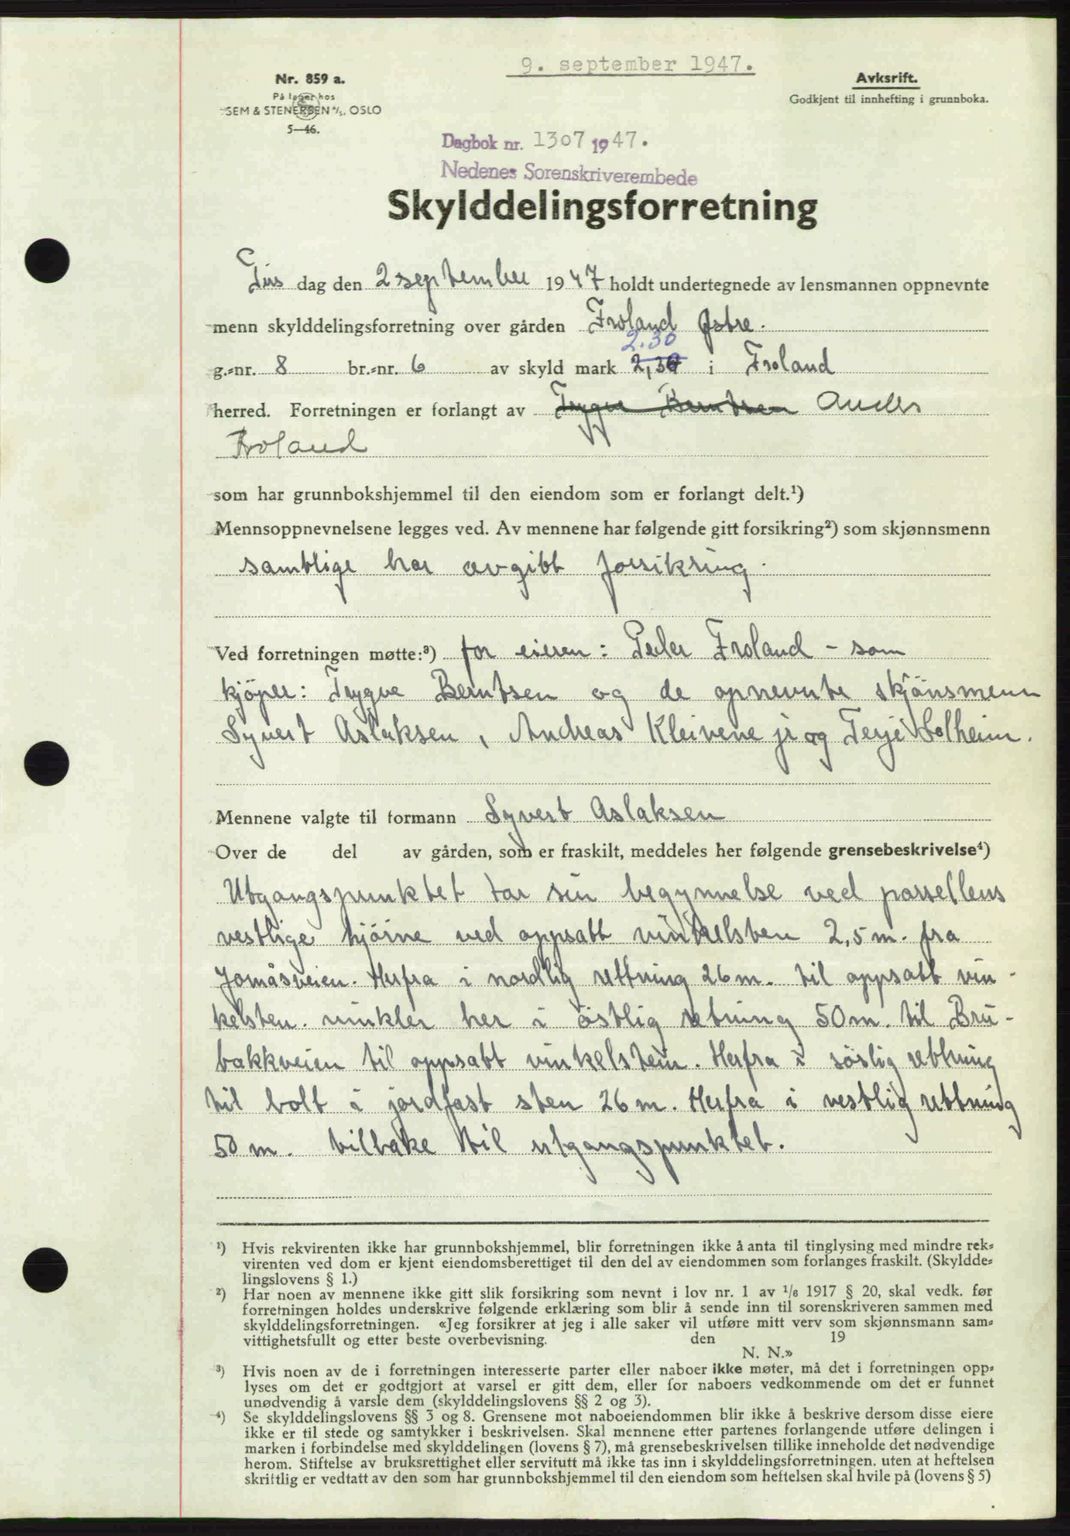 9. september 1947.
Nr. 859 a.
På lager hos
SEM & STENERSEN A/S, OSLO
5—46.
Avskrift.
Godkjent til innhefting i grunnboka.
Dagbok nr. 1307 1947.
Nedenes Sorenskriverembede
Skylddelingsforretning
Tirs dag den 2 september 1947 holdt undertegnede av lensmannen oppnevnte
menn skylddelingsforretning over gården Froland Østre.
2.30
g.-nr. 8 br.-nr. 6 av skyld mark 2,30 i Froland
herred. Forretningen er forlangt av Trygve Berntsen Anders
Froland
som har grunnbokshjemmel til den eiendom som er forlangt delt.¹)
Mennsoppnevnelsene legges ved. Av mennene har følgende gitt forsikring²) som skjønnsmenn
samtlige har avgitt forsikring.
Ved forretningen møtte:³) for eieren: Peder Froland - som
kjöper: Trygve Berntsen og de opnevnte skjönsmenn
Syvert Aslaksen, Andreas Kleivene jr og Terje Solheim.
Mennene valgte til formann Syvert Aslaksen
Over de del av gården, som er fraskilt, meddeles her følgende grensebeskrivelse⁴)
Utgangspunktet tar sin begynnelse ved parsellens
vestlige hjörne ved oppsatt vinkelsten 2,5 m. fra
Jomåsveien. Herfra i nordlig rettning 26 m. til oppsatt vin-
kelsten. vinkler her i östlig retning 50 m. til Bru-
bakkveien til oppsatt vinkelstein. Herfra i sörlig rettning
til bolt i jordfast sten 26 m. Herfra i vestlig rettning
50 m. tilbake til utgangspunktet.
¹) Hvis rekvirenten ikke har grunnbokshjemmel, blir forretningen ikke å anta til tinglysing med mindre rek-
virenten ved dom er kjent eiendomsberettiget til den del av eiendommen som forlanges fraskilt. (Skyldde-
lingslovens § 1.)
²) Har noen av mennene ikke gitt slik forsikring som nevnt i lov nr. 1 av 1/6 1917 § 20, skal vedk. før
forretningen holdes underskrive følgende erklæring som blir å sende inn til sorenskriveren sammen med
skylddelingsforretningen. «Jeg forsikrer at jeg i alle saker vil utføre mitt verv som skjønnsmann sam-
vittighetsfullt og etter beste overbevisning. den 19
N. N.»
³) Hvis noen av de i forretningen interesserte parter eller naboer ikke møter, må det i forretningen opp-
lyses om det er godtgjort at varsel er gitt dem, eller for naboers vedkommende om det er funnet
unødvendig å varsle dem (skylddelingslovens §§ 2 og 3).
⁴) Se skylddelingslovens §§ 3 og 8. Grensene mot naboeiendommen blir ikke å beskrive dersom disse eiere
ikke er til stede og samtykker i beskrivelsen. Skal mennene etter partenes forlangende utføre delingen i
marken i forbindelse med skylddelingen (lovens § 7), må grensebeskrivelsen tillike inneholde det nødvendige
herom. Stiftelse av bruksrettighet eller servitutt må ikke tas inn i skylddelingsforretningen, uten at heftelsen
skriftlig er vedtatt av den som har grunnbokshjemmel til den eiendom som heftelsen skal hvile på (lovens § 5)